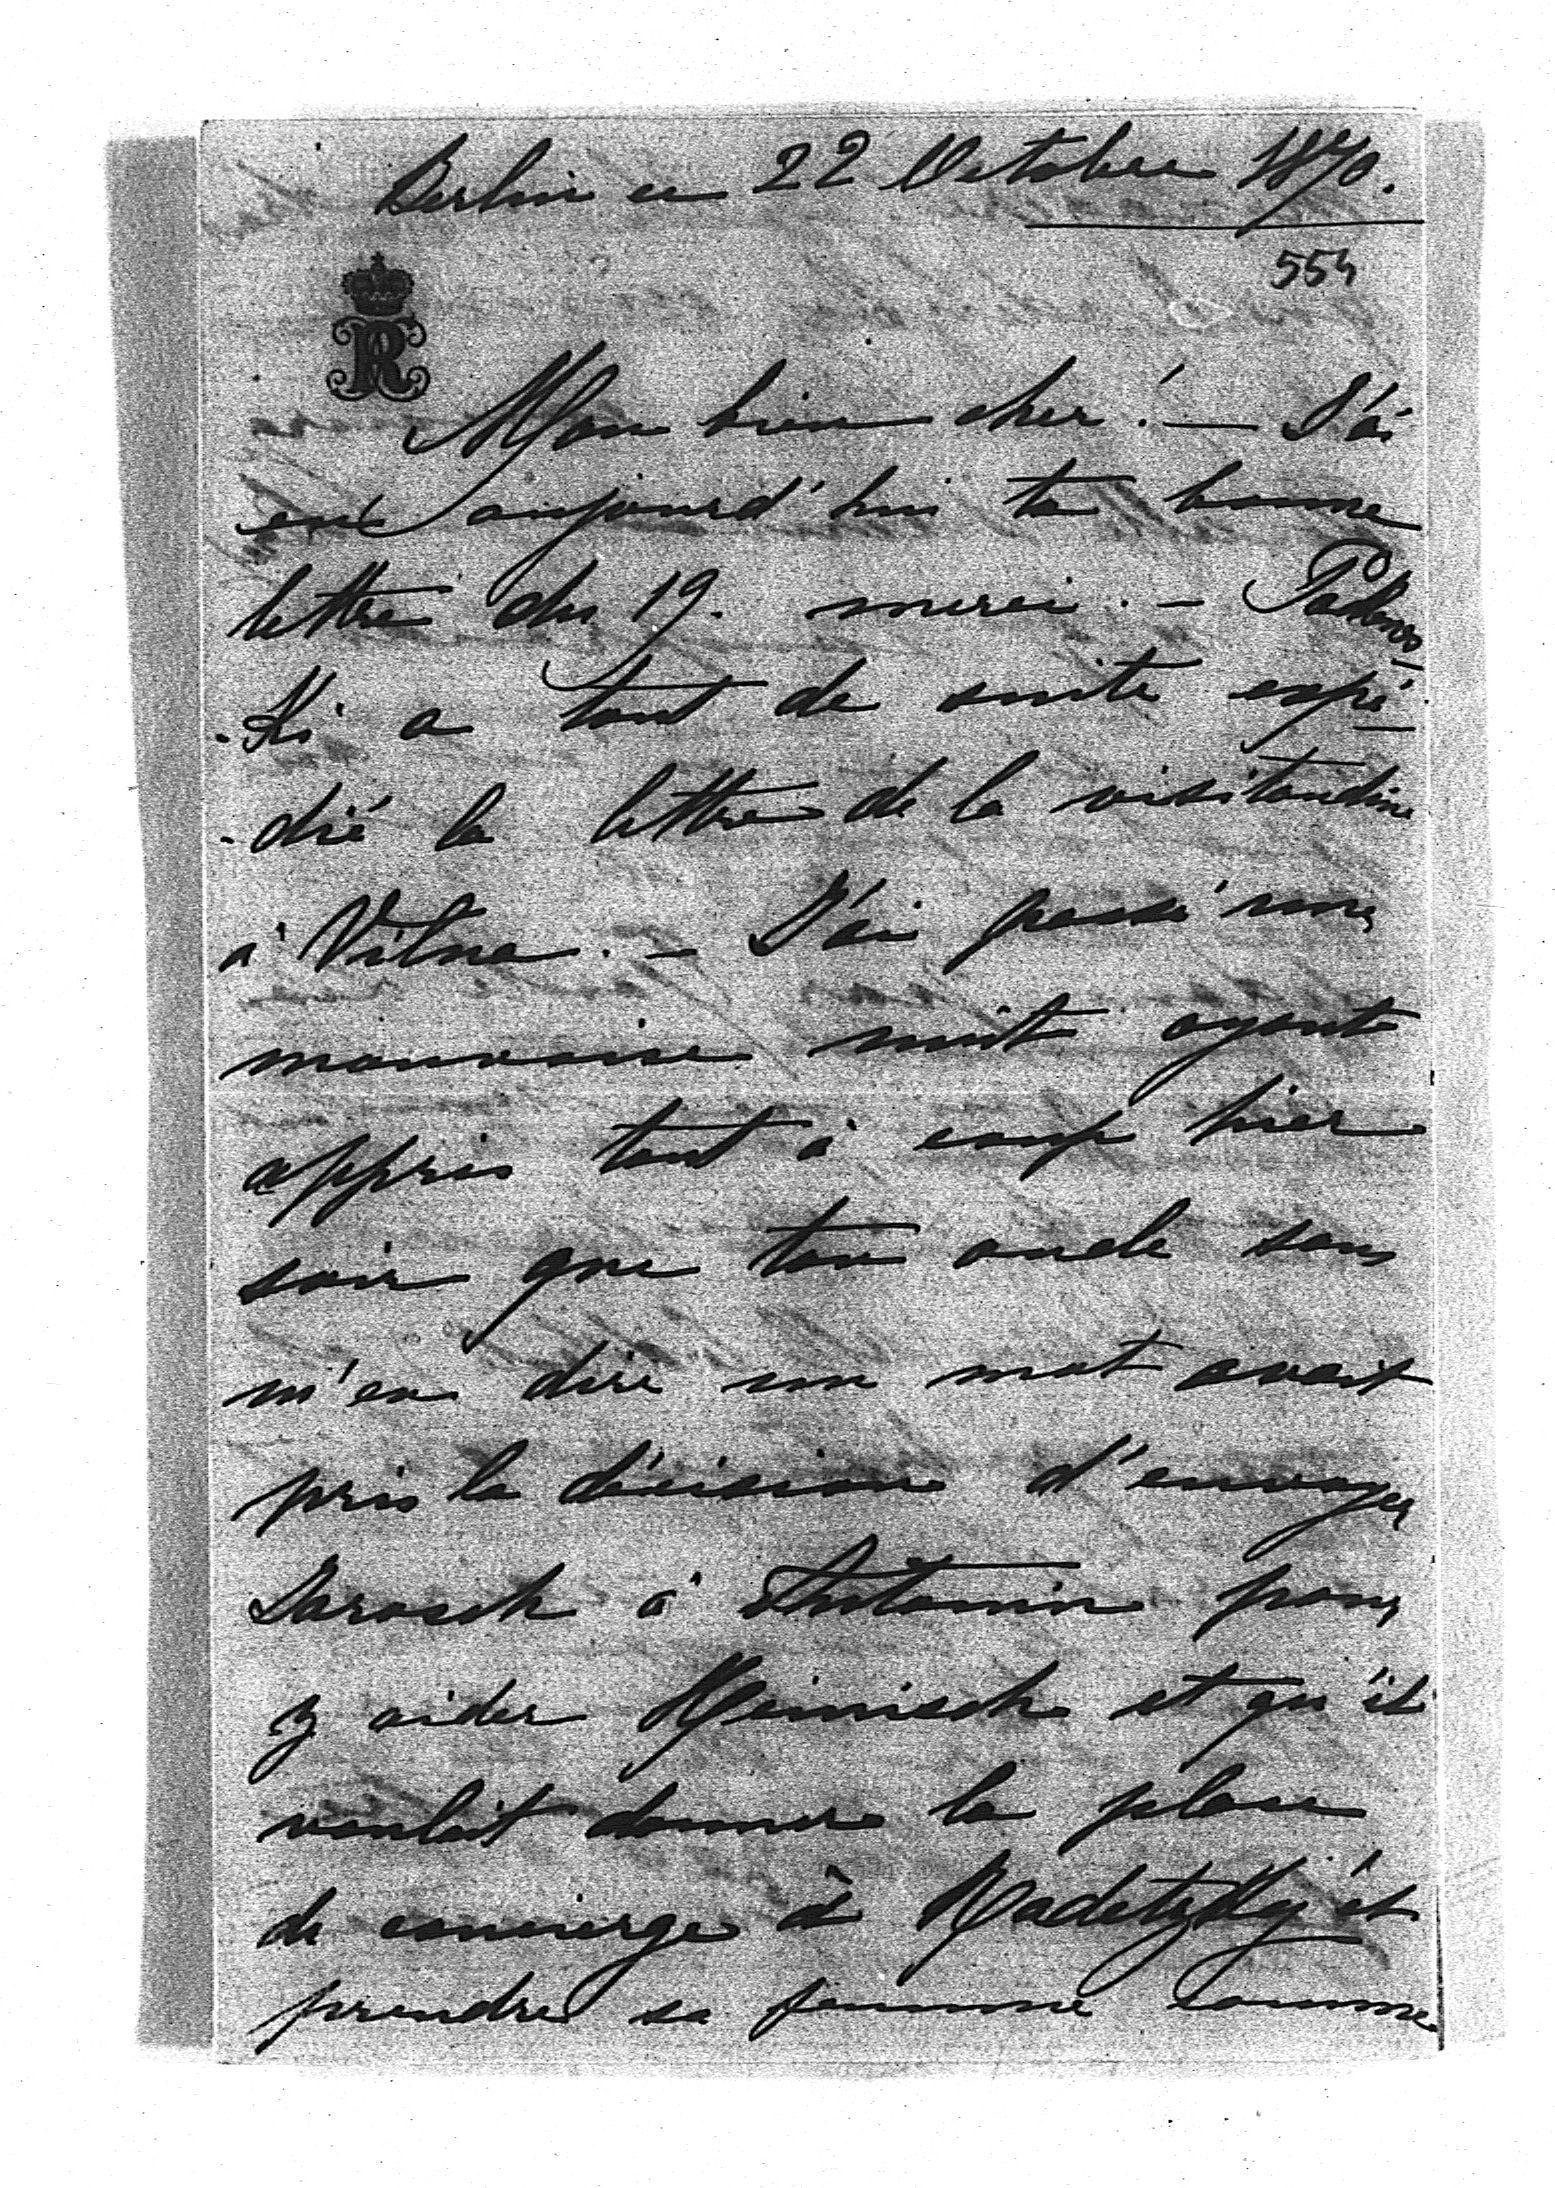 Berlin ce 22 Octobre 1870.
554
R
Mon bien cher! — J'ai
eu aujourd'hui ta bonne
lettre du 19. merci. —
-ki a tout de suite expé-
-dié la lettre de la visitandine
à Vilna. — J'ai passé une
mauvaise nuit ayant
appris tout à coup hier
soir que ton oncle sans
m'en dire un mot avait
pris la décision d'envoyer
Jarosch à Antonin pour
y aider Heinisch et qu'il
voulait donner la place
de concierge à Radetzky et
prendre sa femme comme